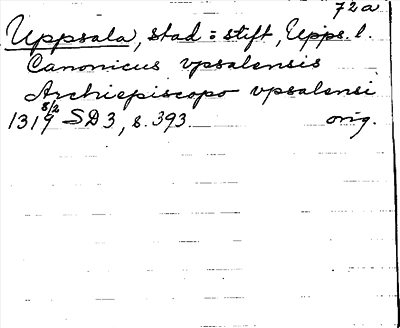 72a
Uppsala, stad o stift, Upps. l.
Canonicus vpsalensis
Archiepiscopo vpsalensi
8/2
1319 SD3, s. 393. orig.